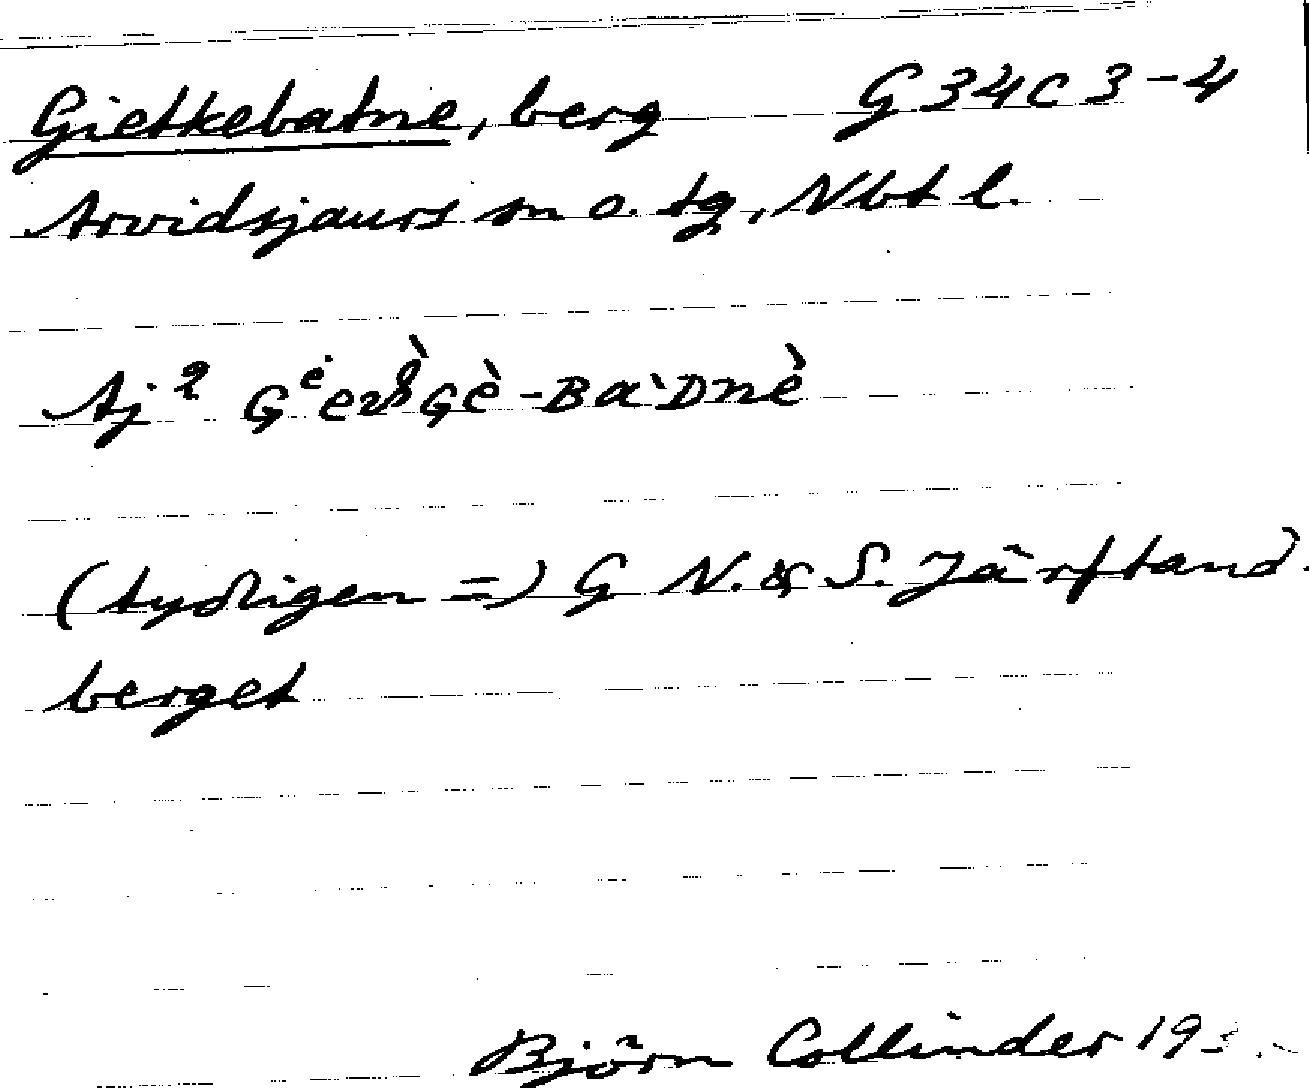 Gietkebatne, berg G34C 3-4
Arvidsjaurs sn o. tg, Nbt l.
Aj²
(tydligen =) G N. & S. Järftand.
berget
Björn Collinder 193